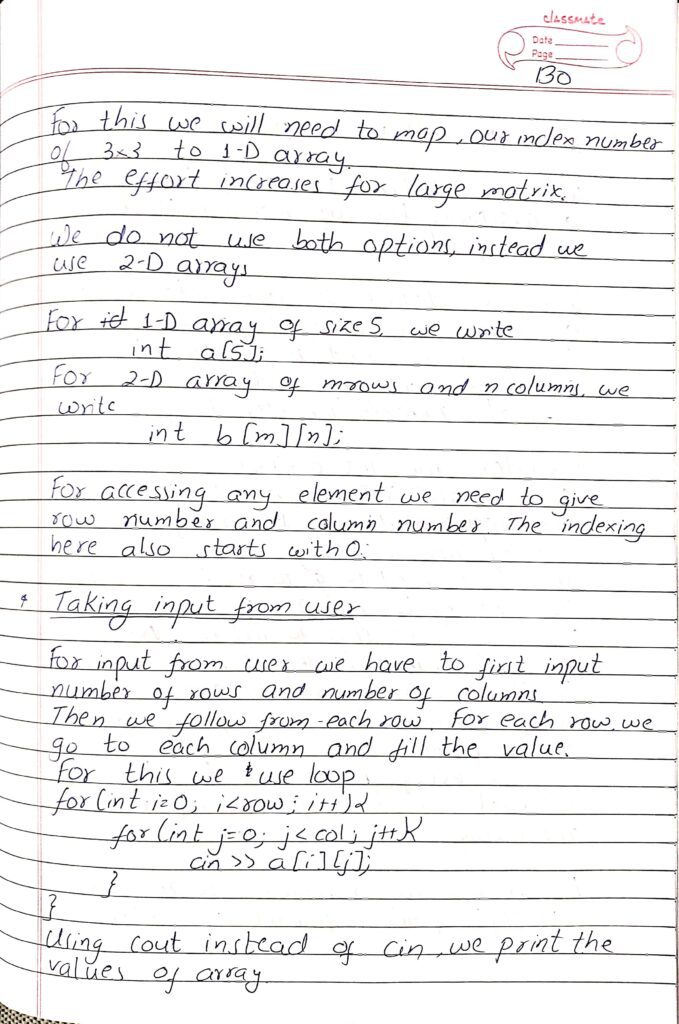 classmate
Date
Page
130
For this we will need to map, our index number
of 3x3 to 1-D array.
The effort increases for large matrix.
We do not use both options, instead we
use 2-D arrays
For 1-D array of size 5, we write
int a[5];
For 2-D array of m rows and n columns, we
write
int b[m][n];
For accessing any element we need to give
row number and column number. The indexing
here also starts with 0.
Taking input from user
For input from user we have to first input
number of rows and number of columns
Then we follow from each row. For each row, we
go to each column and fill the value.
For this we use loop.
for(int i=0; i<row; i++){
for(int j=0; j<col; j++){
cin >> a[i][j];
}
}
Using cout instead of cin, we print the
values of array